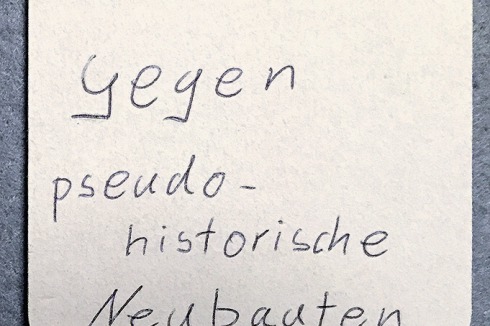 gegen
pseudo-
historische
Neubauten